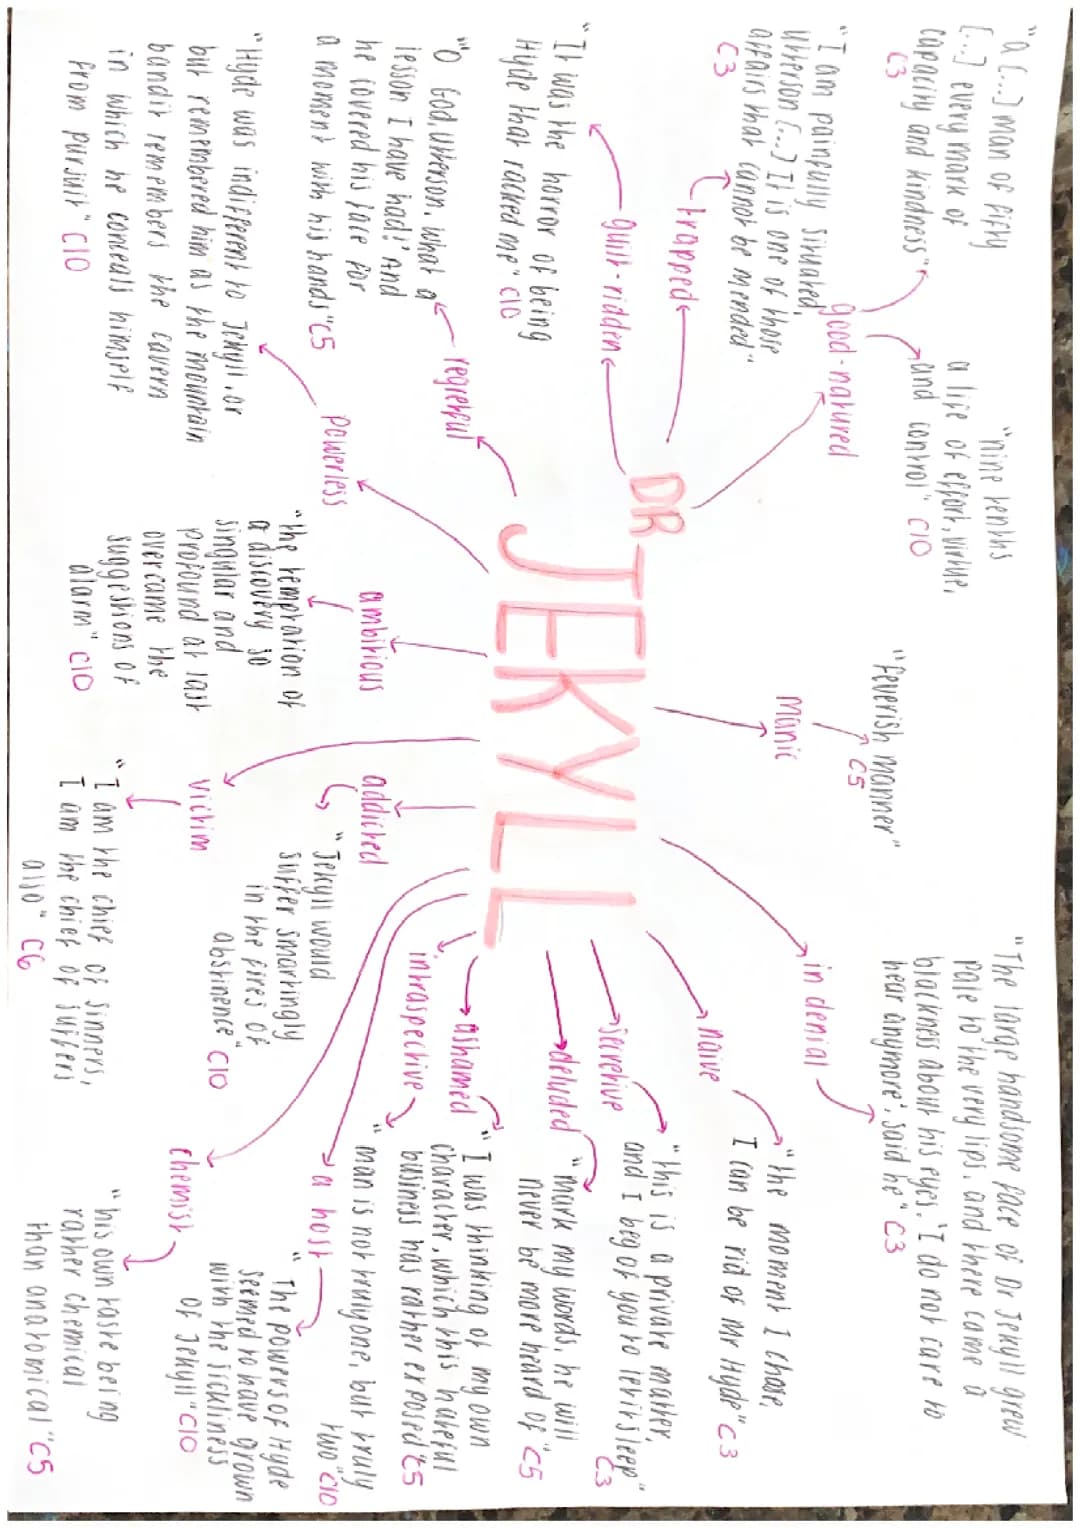 DR
JEKYLL
good-natured
"a [...] man of fifty
[...] every mark of
capacity and kindness"
C3
"nine tenths
a life of effort, virtue,
and control" C10
trapped
"I am painfully situated,
Utterson [...] It is one of those
affairs that cannot be mended"
C3
guilt-ridden
"It was the horror of being
Hyde that racked me" C10
regretful
"O God, Utterson, what a
lesson I have had!' And
he covered his face for
a moment with his hands" C5
powerless
"Hyde was indifferent to Jekyll, or
but remembered him as the mountain
bandit remembers the cavern
in which he conceals himself
from pursuit" C10
ambitious
"the temptation of
a discovery so
singular and
profound at last
overcame the
suggestions of
alarm" C10
Manic
"feverish manner"
C5
victim
"I am the chief of sinners,
I am the chief of suffers
also" C6
addicted
"Jekyll would
suffer smartingly
in the fires of
abstinence" C10
in denial
"The large handsome face of Dr Jekyll grew
pale to the very lips, and there came a
blackness about his eyes. 'I do not care to
hear anymore', said he" C3
naive
"the moment I chose,
I can be rid of Mr Hyde" C3
secretive
"this is a private matter,
and I beg of you to let it sleep"
C3
deluded
"mark my words, he will
never be more heard of" C5
ashamed
"I was thinking of my own
character, which this hateful
business has rather exposed" C5
intraspective
"man is not truly one, but truly
two" C10
a host
"The powers of Hyde
seemed to have grown
with the sickliness
of Jekyll" C10
chemist
"his own taste being
rather chemical
than anatomical" C5